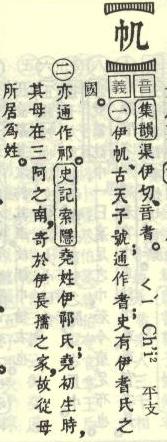 帆
音 集韻 渠伊切,音耆。 ㄑㄧ Ch'i² 平支
義 ㊀伊帆、古天子號;通作耆;史有伊耆氏之
國。
㊁亦通作祁。史記索隱堯姓伊祁氏堯初生時,
其母在三阿之南,寄於伊長孺之家,故從母
所居爲姓。